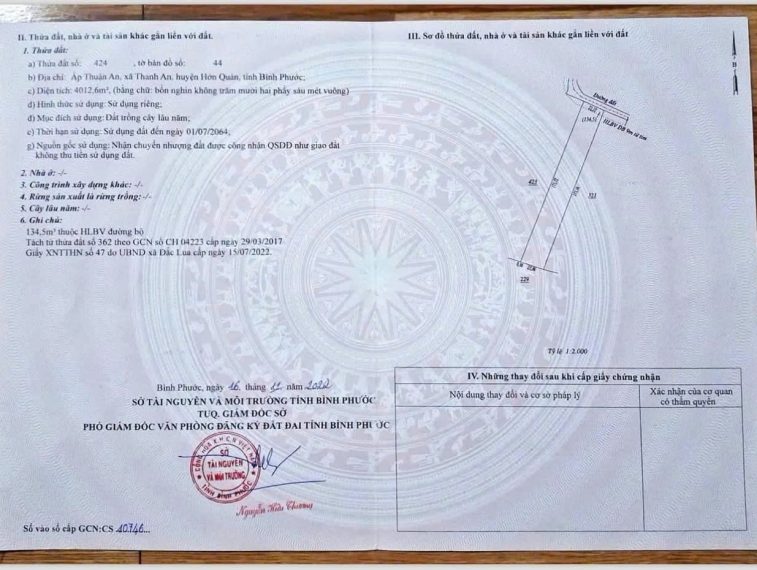 II. Thửa đất, nhà ở và tài sản khác gắn liền với đất.
1. Thửa đất:
a) Thửa đất số: 424 , tờ bản đồ số: 44
b) Địa chỉ: Ấp Thuận An, xã Thanh An, huyện Hớn Quản, tỉnh Bình Phước;
c) Diện tích: 4012,6m², (bằng chữ: bốn nghìn không trăm mười hai phẩy sáu mét vuông)
d) Hình thức sử dụng: Sử dụng riêng;
đ) Mục đích sử dụng: Đất trồng cây lâu năm;
e) Thời hạn sử dụng: Sử dụng đất đến ngày 01/07/2064;
g) Nguồn gốc sử dụng: Nhận chuyển nhượng đất được công nhận QSDĐ như giao đất
không thu tiền sử dụng đất.
2. Nhà ở: -/-
3. Công trình xây dựng khác: -/-
4. Rừng sản xuất là rừng trồng: -/-
5. Cây lâu năm: -/-
6. Ghi chú:
134,5m² thuộc HLBV đường bộ
Tách từ thửa đất số 362 theo GCN số CH 04223 cấp ngày 29/03/2017
Giấy XNTTHN số 47 do UBND xã Đắc Lua cấp ngày 15/07/2022.
Bình Phước, ngày 16 tháng 11 năm 2022
SỞ TÀI NGUYÊN VÀ MÔI TRƯỜNG TỈNH BÌNH PHƯỚC
TUQ. GIÁM ĐỐC SỞ
PHÓ GIÁM ĐỐC VĂN PHÒNG ĐĂNG KÝ ĐẤT ĐAI TỈNH BÌNH PHƯỚC
SỞ
TÀI NGUYÊN
VÀ MÔI TRƯỜNG
TỈNH BÌNH PHƯỚC
Nguyễn Hữu Chương
Số vào sổ cấp GCN:CS 10746...
III. Sơ đồ thửa đất, nhà ở và tài sản khác gắn liền với đất
B
Đường đất
(134.5)
HLBV ĐB 9m từ tim
423
321
229
Tỷ lệ 1:2.000
IV. Những thay đổi sau khi cấp giấy chứng nhận
Nội dung thay đổi và cơ sở pháp lý
Xác nhận của cơ quan
có thẩm quyền